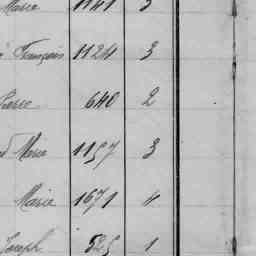 Marie 1141 3
François 1124 3
Pierre 640 2
Marie 1157 3
Marie 1671 4
Joseph 525 1